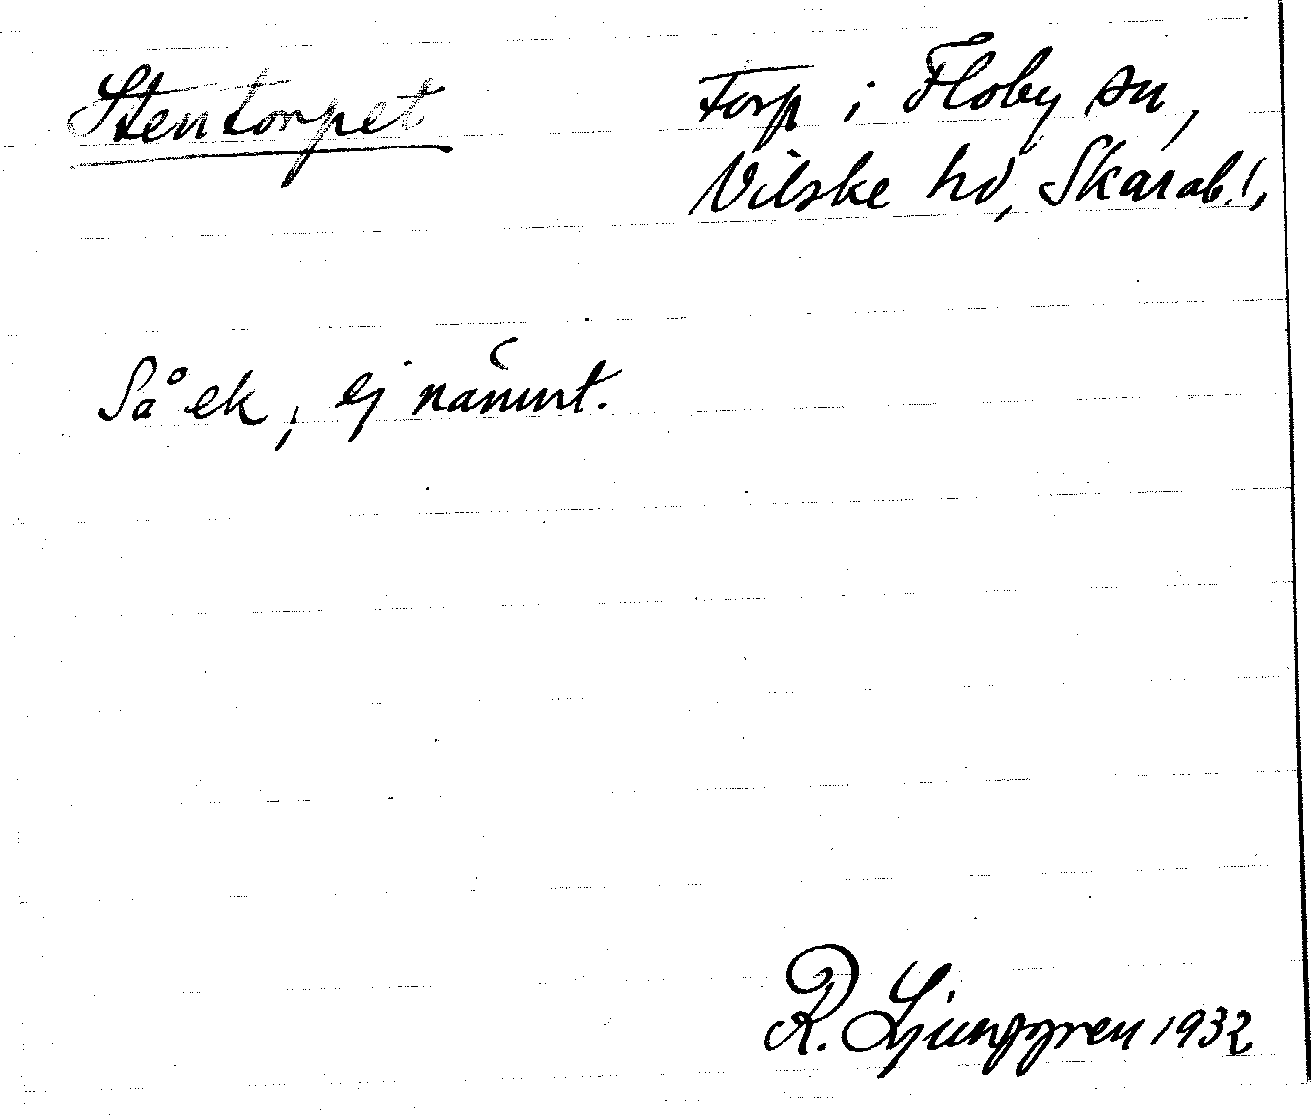 Stentorpet
Torp i Floby sn,
Vilske hd, Skarab.l,
Så ek, ej nämnt.
R. Ljunggren 1932